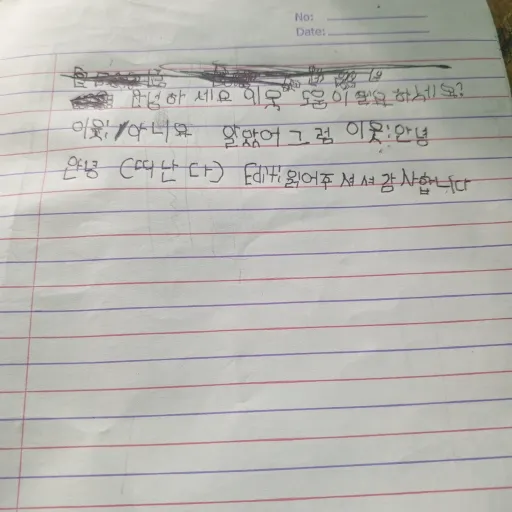 No:
Date:
안녕하세요 이웃 도움이 필요하세요?
이웃: 아니요 알았어 그럼 이웃: 안녕
안녕 (떠난다) Edit: 읽어주셔서 감사합니다